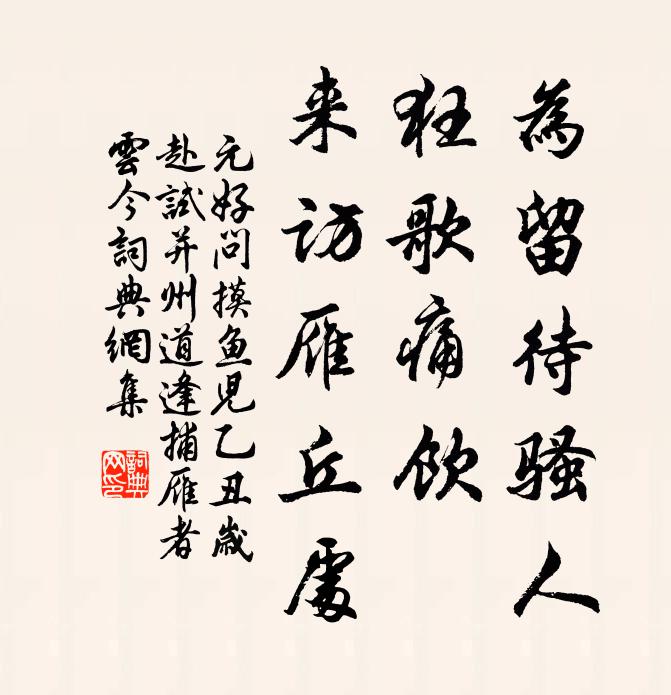 為留待骚人
狂歌痛饮
来访雁丘處
元好问摸鱼児乙丑歲
赴試并州道逢捕雁者
雲今詞典網集
詞典网印